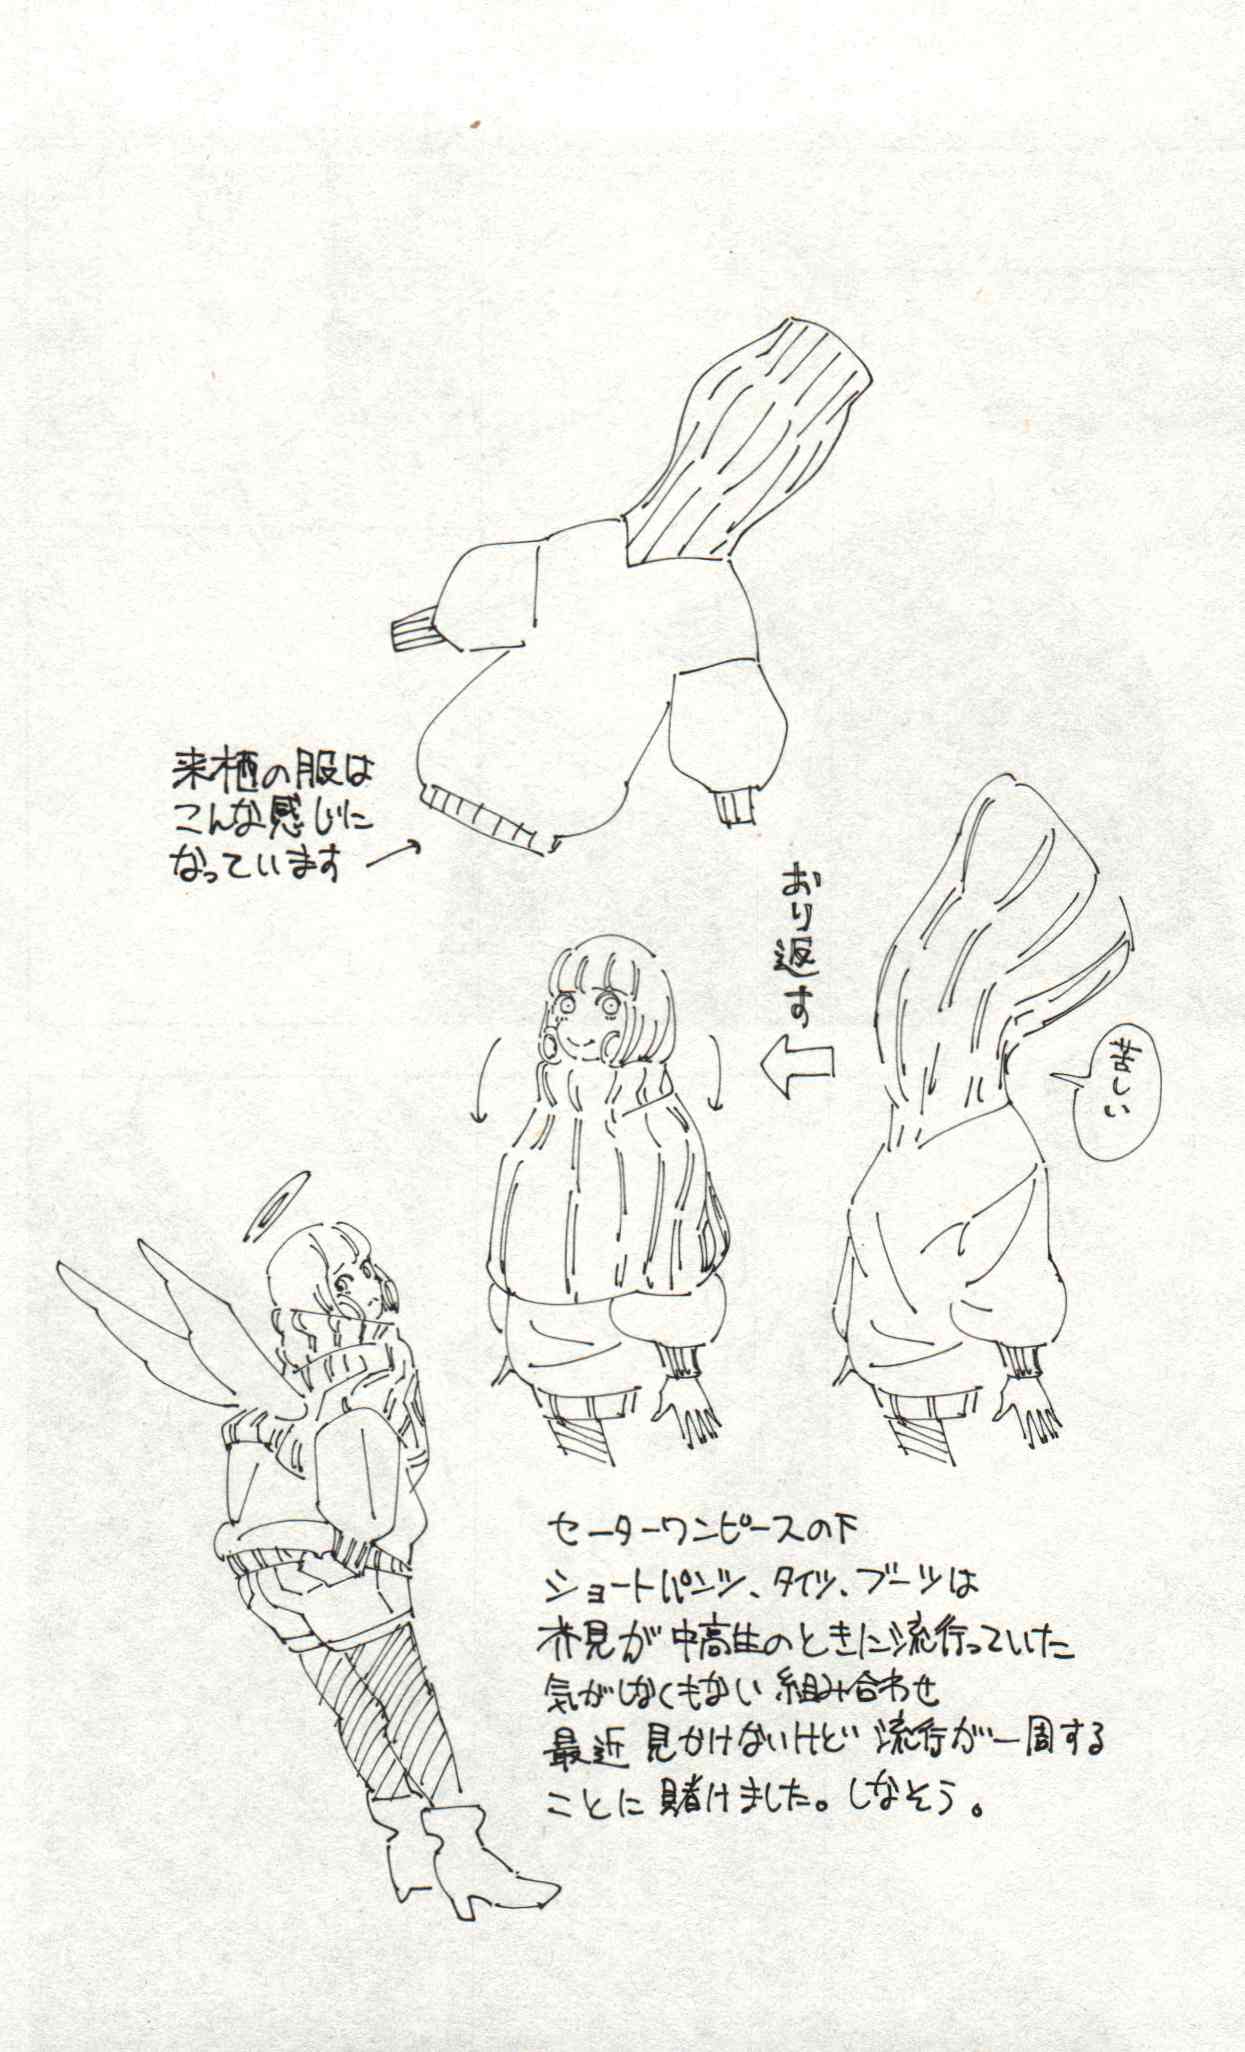 来栖の服は
こんな感じに
なっています
おり返す
苦しい
セーターワンピースの下
ショートパンツ、タイツ、ブーツは
芥見が中高生のときに流行っていた
気がしなくもない組み合わせ
最近見かけないけど流行が一周する
ことに賭けました。しなそう。